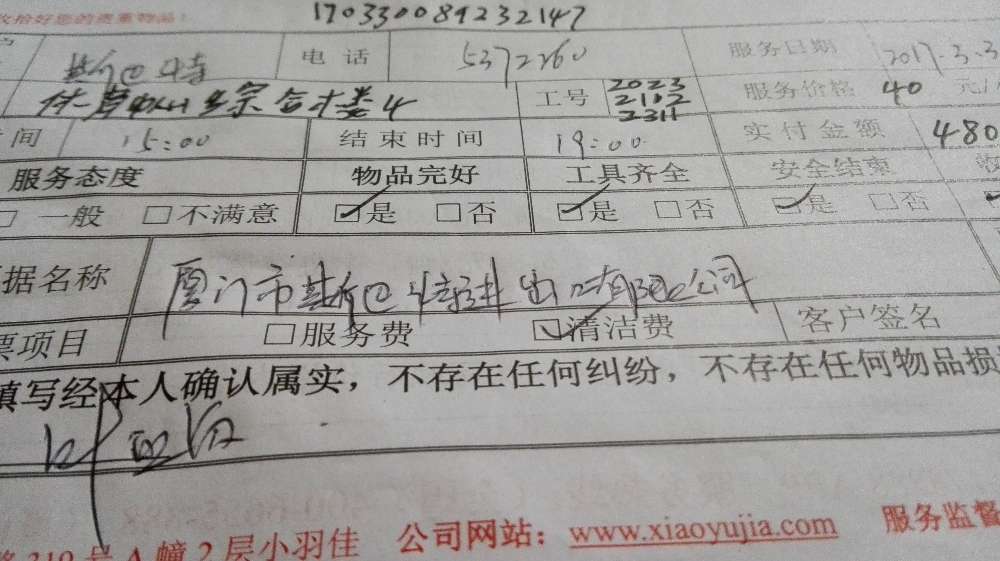 收拾好您的贵重物品! 170330089232147
电话 5372260 服务日期 2017.3.3
4 工号 2023 2112 2311 服务价格 40 元/
时间 15:00 结束时间 19:00 实付金额 480
服务态度 物品完好 工具齐全 安全结束
□一般 □不满意 ☑是 □否 ☑是 □否 ☑是 □否
据名称 厦门市 进出口有限公司
票项目 □服务费 ☑清洁费 客户签名
填写经本人确认属实，不存在任何纠纷，不存在任何物品损
路319号A幢2层小羽佳 公司网站：www.xiaoyujia.com 服务监督